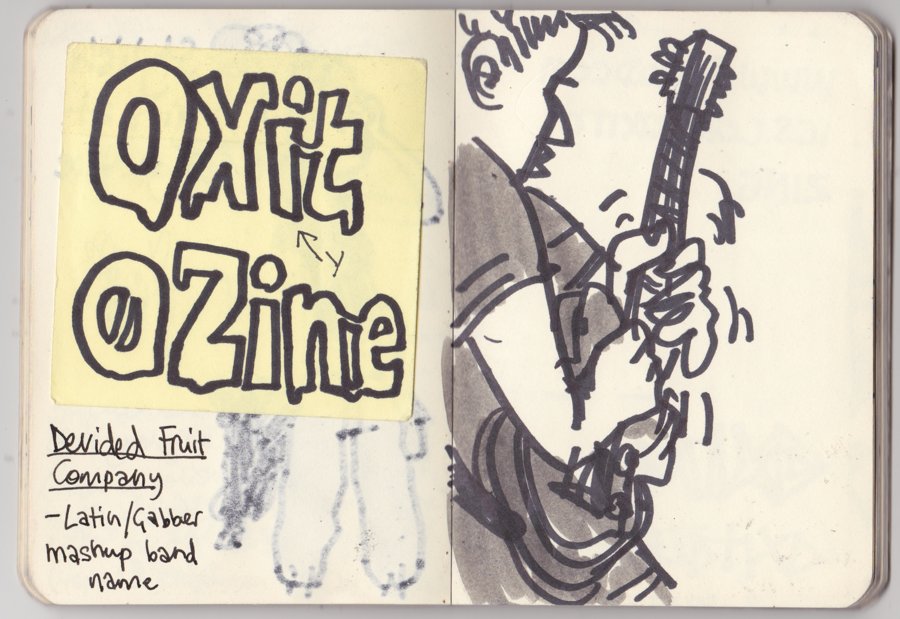 Oxit
y
@Zine
Devided Fruit
Company
-Latin/Gabber
mashup band
name